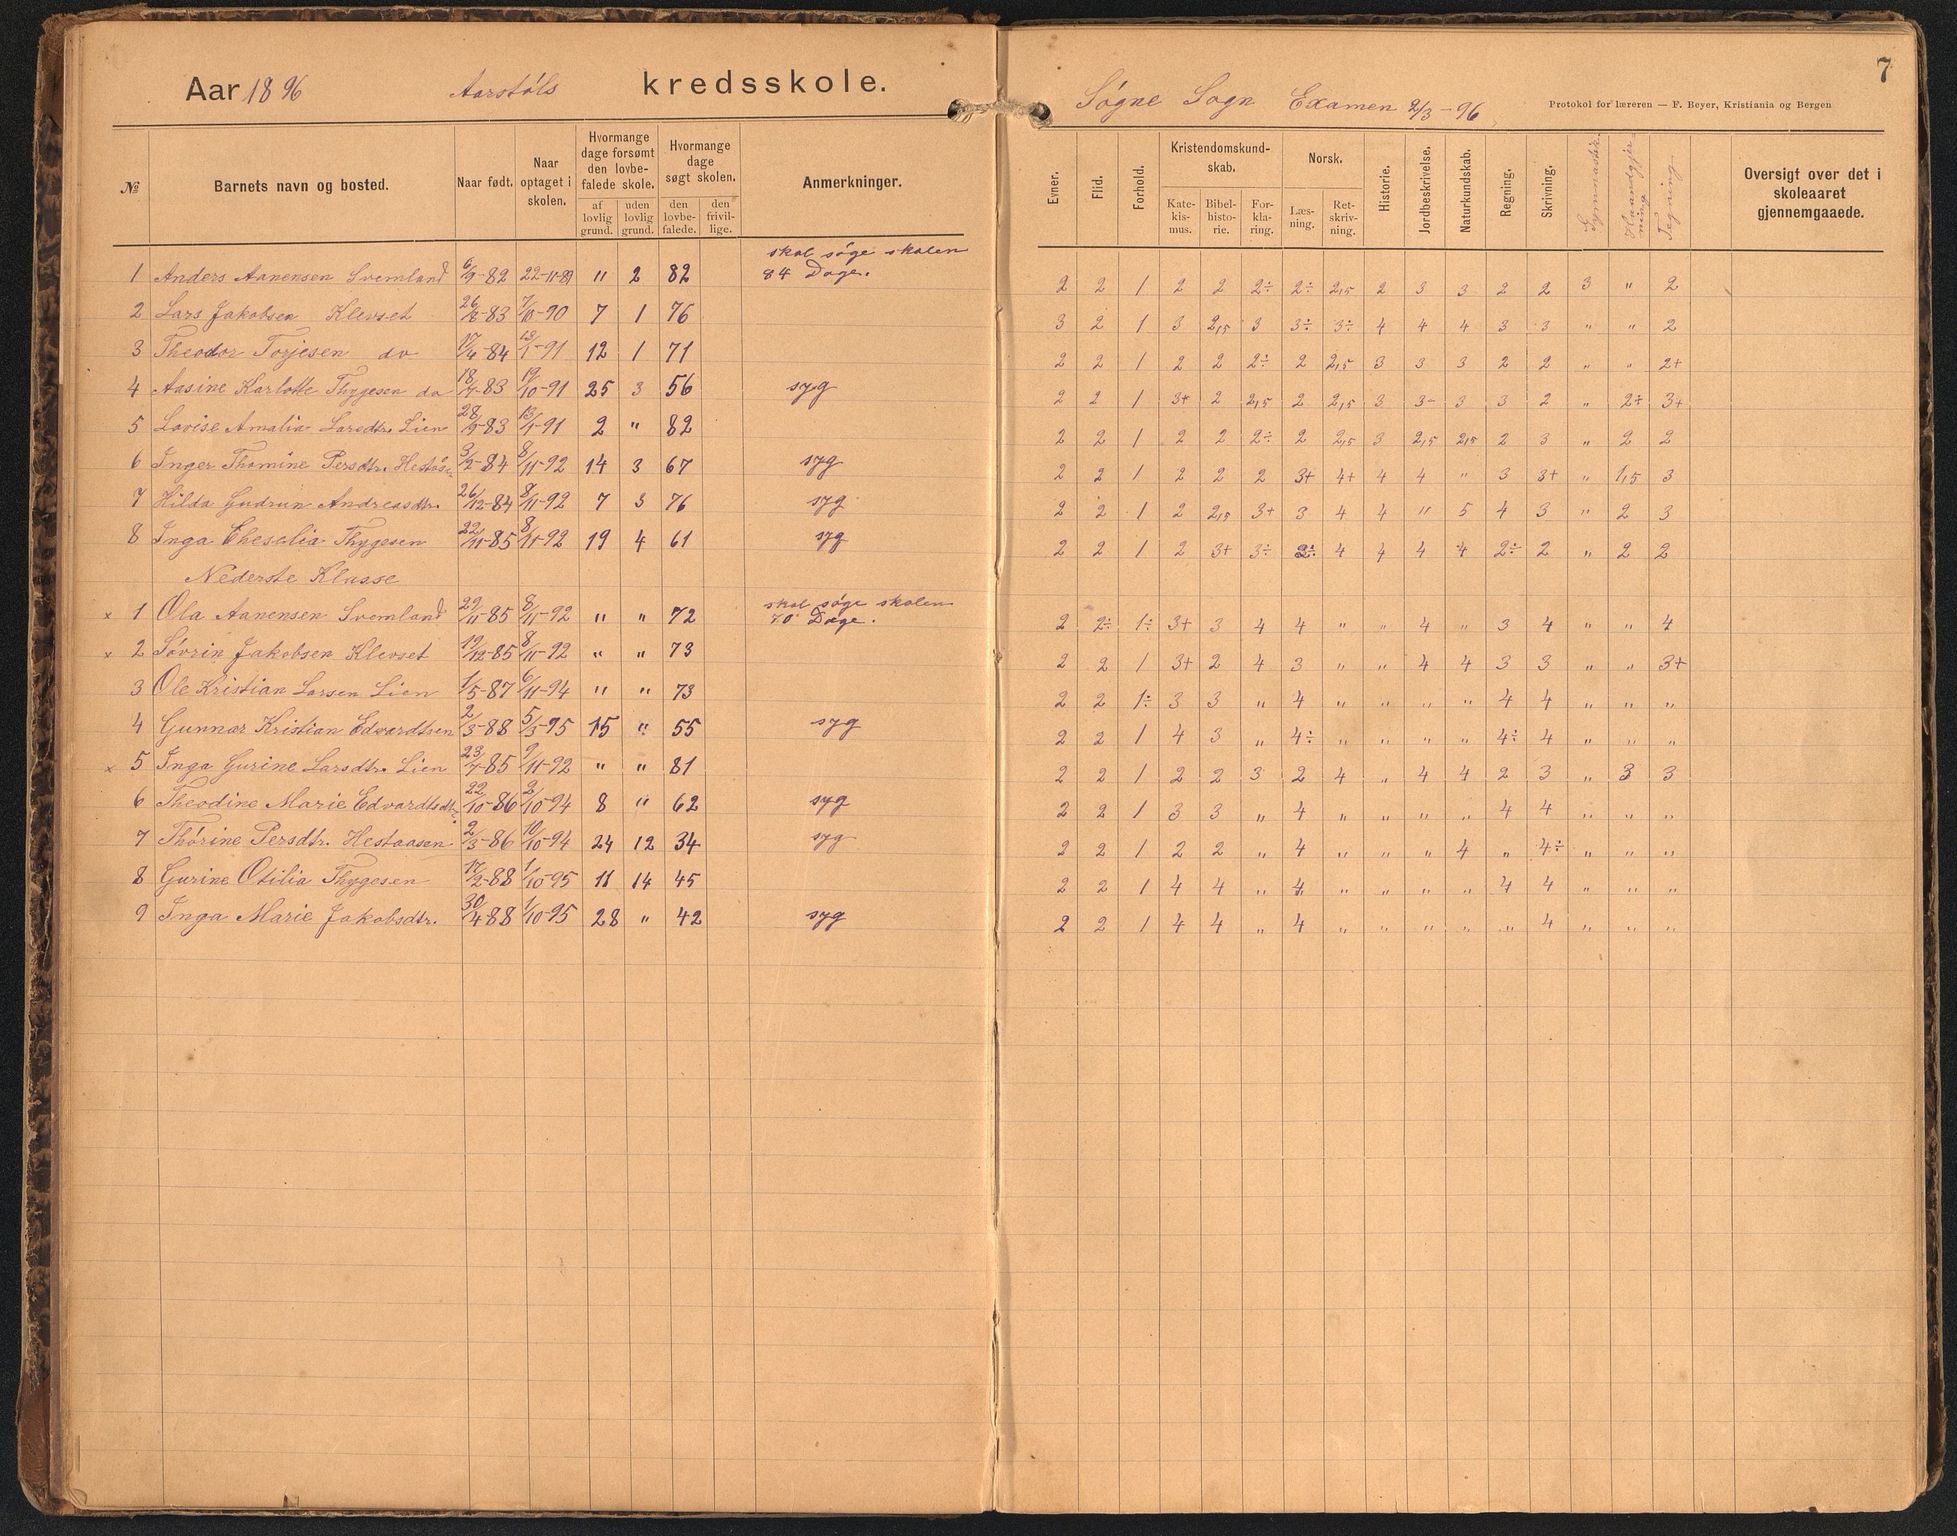 Aar 1896 Aarstøls kredsskole.
№
Barnets navn og bosted.
Naar født.
Naar optaget i skolen.
Hvormange dage forsømt den lovbe- falede skole.
af lovlig grund.
uden lovlig grund.
Hvormange dage søgt skolen.
den lovbe- falede.
den frivil- lige.
Anmerkninger.
1 Anders Aanensen Svemland 6/9-82 22-11-89 " 2 82 skal søge skolen 84 Dage.
2 Lars Jakobsen Klevset 26/8-83 7/10-90 7 1 76
3 Theodor Torjesen do 17/4-84 13/1-91 12 1 71
4 Aasine Karlotte Thygesen do 18/7-83 19/10-91 25 3 56 syg
5 Lovise Amalia Larsdtr. Lien 28/9-83 13/1-91 2 " 82
6 Inger Thomine Persdtr. 3/2-84 8/11-92 14 3 67 syg
7 Hilda Gudrun Andreasdtr. 26/12-84 8/11-92 7 3 76 syg
8 Inga Thygesen 22/11-85 8/11-92 19 4 61 syg
Nederste Klasse
x 1 Ola Aanensen Svemland 29/11-85 8/11-92 " " 72 skal søge skolen 70 Dage.
x 2 Søvrin Jakobsen Klevset 19/12-85 8/11-92 " " 73
3 Ole Kristian Larsen Lien 1/5-87 6/11-94 " " 73
4 Gunnar Kristian Edvardtsen 2/3-88 5/3-95 15 " 55 syg
x 5 Inga Gurine Larsdtr. Lien 23/7-85 9/11-92 " " 81
6 Theodine Marie Edvardtsdtr. 22/10-86 2/10-94 8 " 62 syg
7 Thorine Persdtr. Hestaasen 2/3-86 10/10-94 24 12 34 syg
8 Gurine Otilia Thygesen 17/2-88 1/10-95 11 14 45
9 Inga Marie Jakobsdtr. 30/4-88 1/10-95 28 " 42 syg
7
Søgne Sogn Examen 2/3-96
Protokol for læreren — F. Beyer, Kristiania og Bergen
Evner.
Flid.
Forhold.
Kristendomskund- skab.
Kate- kis- mus.
Bibel- histo- rie.
For- kla- ring.
Norsk.
Læs- ning.
Ret- skriv- ning.
Historie.
Jordbeskrivelse.
Naturkundskab.
Regning.
Skrivning.
Gymnastik.
Haandgjerning
Tegning.
Oversigt over det i skoleaaret gjennemgaaede.
2 2 1 2 2 2÷ 2÷ 2,5 2 3 3 2 2 3 " 2
3 2 1 3 2,5 3 3÷ 3÷ 4 4 4 3 3 " " 2
2 2 1 2 2 2÷ 2 2,5 3 3 3 2 2 " " 2+
2 2 1 3+ 2 2,5 2 2,5 3 3- 3 3 2 " 2÷ 3+
2 2 1 2 2 2÷ 2 2,5 3 2,5 2,5 2 3 " 2 2
2 2 1 2 2 2 3+ 4+ 4 4 " 3 3+ " 1,5 3
2 2 1 2 2,5 3+ 3 4 4 " 5 4 3 " 2 3
2 2 1 2 3+ 3÷ 2÷ 4 4 4 4 2÷ 2 " 2 2
2 2÷ 1÷ 3+ 3 4 4 " " 4 " 3 4 " " 4
2 2 1 3+ 2 4 3 " " 4 4 3 3 " " 3+
2 2 1÷ 3 3 " 4 " " " " 4 4 " " "
2 2 1 4 3 " 4÷ " " " " 4÷ 4 " " "
2 2 1 2 2 3 2 4 " 4 4 2 3 " 3 3
2 2 1 3 3 " 4 " " " " 4 4 " " "
2 2 1 2 2 " 4 " " " 4 " 4÷ " " "
2 2 1 4 4 " 4 " " " " 4 4 " " "
2 2 1 4 4 " 4 " " " " " 4 " " "